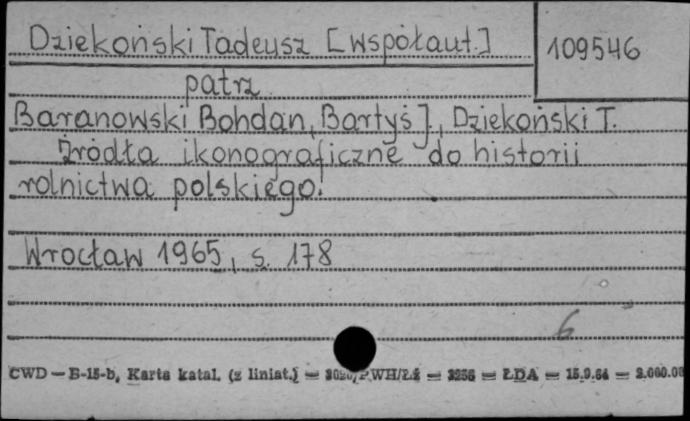 Dziekoński Tadeusz [współaut.]
109546
patrz
Baranowski Bohdan, Bartyś J., Dziekoński T.
Źródła ikonograficzne do historii
rolnictwa polskiego.
Wrocław 1965, s. 178
6
CWD — B-15-b, Karta katal. (z liniat.) — WH/Łź — 3256 — ŁDA — 15.9.64 — 2.000.00